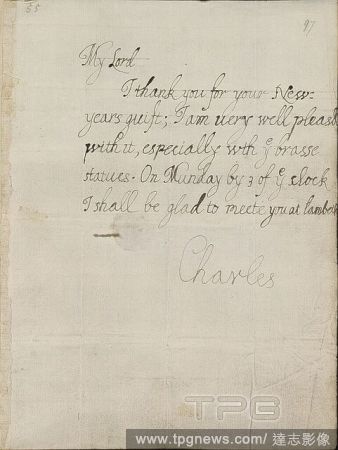 55
97
My Lord
I thank you for your New-
years guift; I am uery well pleasd
with it, especially wth yͤ brasse
statues. On Munday by 3 of yͤ clock
I shall be glad to meete you at lambeth
Charles
TPG
www.tpgnews.com/達志影像